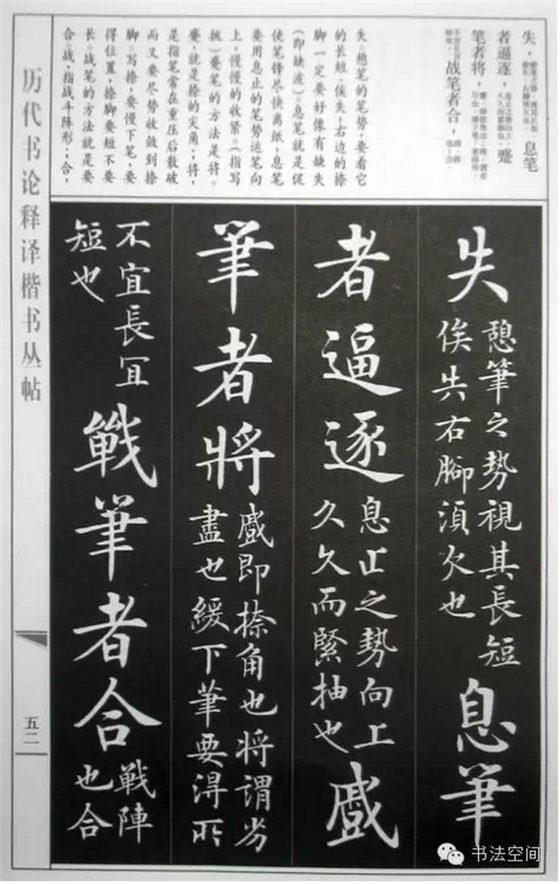 失， 息笔
者逼逐， 蹙
笔者将，
战笔者合，
失。憩笔的笔势，要看它
的长短，俟失，右边的捺
脚一定要好像有缺失
（即缺波）。息笔就是促
使笔锋尽快离纸，息笔
要用息止的笔势运笔向
上，慢慢的收紧。（指写
挑）蹙笔的方法是将。
蹙，就是捺的尖角；将，
是指笔常在重压后散破
而又要尽势收敛到捺
脚。写捺，要慢下笔，要
得位置，捺脚要短不要
长。战笔的方法就是要
合。战，指战斗阵形；合，
失
憩筆之勢視其長短
俟失右腳須欠也
息筆
者逼逐
息止之勢向上
久久而緊抽也
戚
筆者將
戚即捺角也將謂劣
盡也緩下筆要得所
不宜長宜
短也
戰筆者合
戰陣
也合
历代书论释译楷书丛帖
五二
书法空间